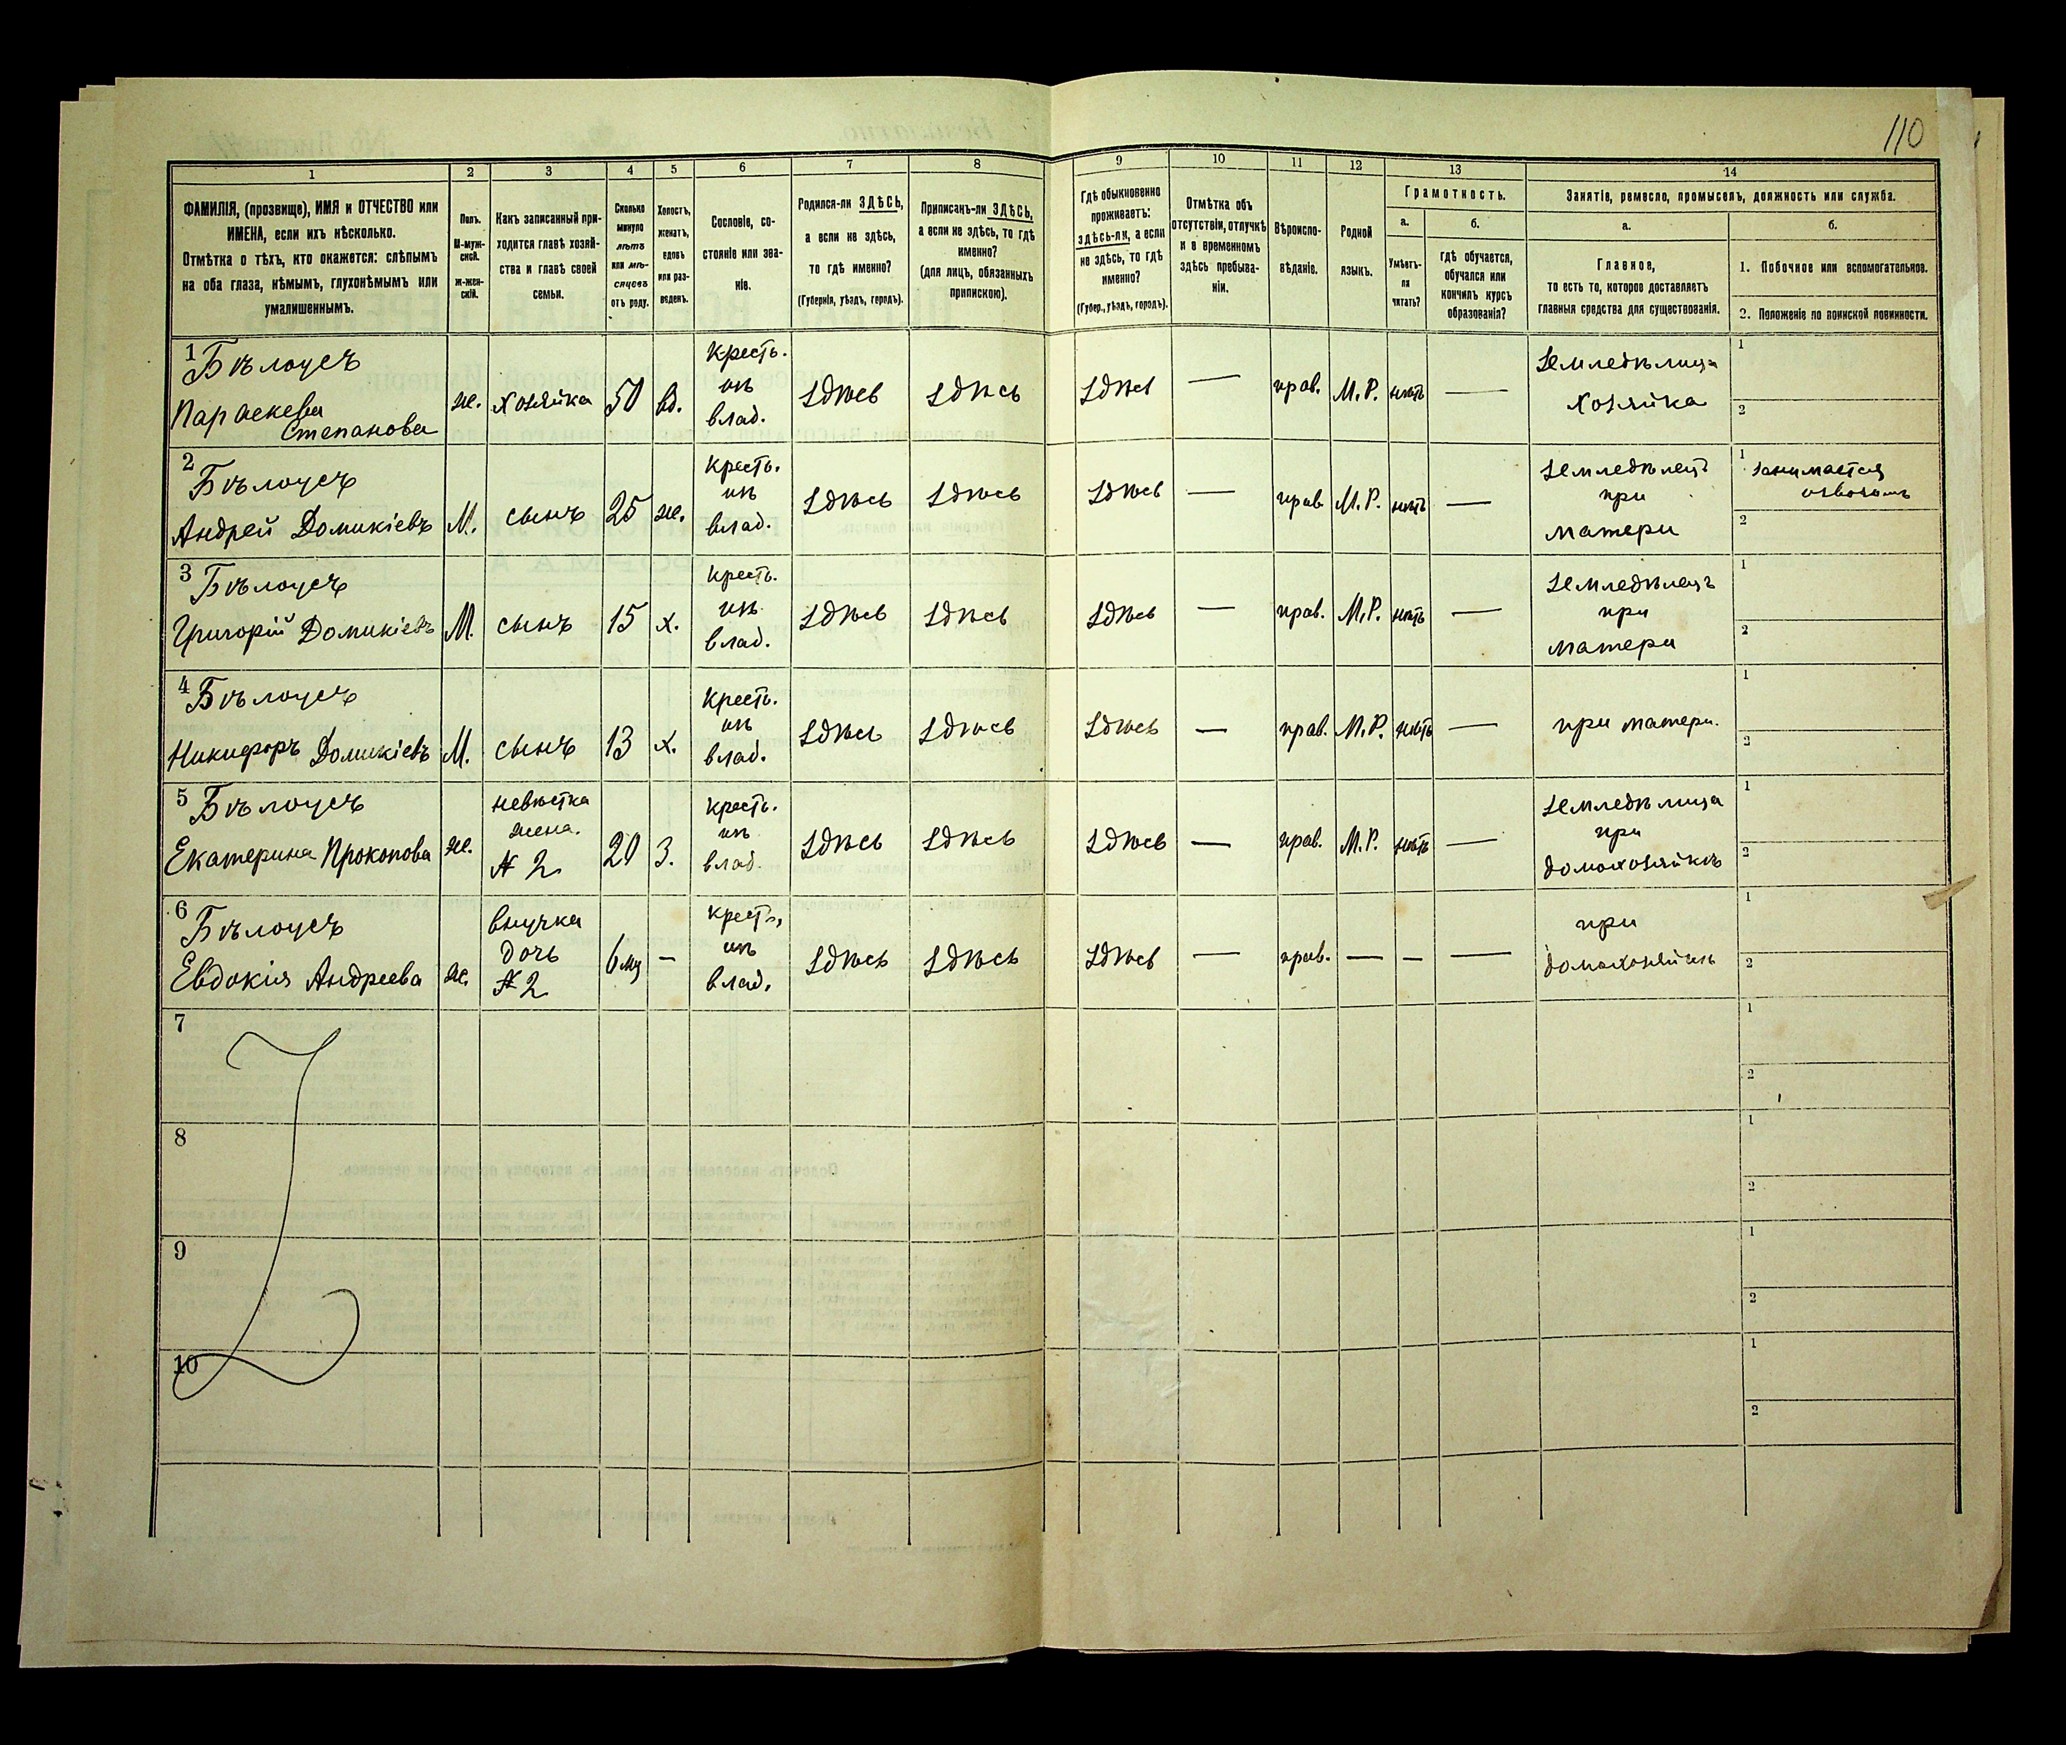 110
1
2
3
4
5
6
7
8
9
10
11
12
13
14
ФАМИЛІЯ, (прозвище), ИМЯ и ОТЧЕСТВО или
ИМЕНА, если ихъ нѣсколько.
Отмѣтка о тѣхъ, кто окажется: слѣпымъ
на оба глаза, нѣмымъ, глухонѣмымъ или
умалишеннымъ.
Полъ.
М-муж-
ской.
ж-жен-
скій.
Какъ записанный при-
ходится главѣ хозяй-
ства и главѣ своей
семьи.
Сколько
минуло
лѣтъ
или мѣ-
сяцевъ
отъ роду.
Холостъ,
женатъ,
вдовъ
или раз-
веденъ.
Сословіе, со-
стояніе или зва-
ніе.
Родился-ли ЗДѢСЬ,
а если не здѣсь,
то гдѣ именно?
(Губернія, уѣздъ, городъ).
Приписанъ-ли ЗДѢСЬ,
а если не здѣсь, то гдѣ
именно?
(для лицъ, обязанныхъ
припискою).
Гдѣ обыкновенно
проживаетъ:
здѣсь-ли, а если
не здѣсь, то гдѣ
именно?
(Губер., уѣздъ, городъ).
Отмѣтка объ
отсутствіи, отлучкѣ
и о временномъ
здѣсь пребыва-
ніи.
Вѣроиспо-
вѣданіе.
Родной
языкъ.
Грамотность.
а.
Умѣетъ-
ли
читать?
б.
гдѣ обучается,
обучался или
кончилъ курсъ
образованія?
Занятіе, ремесло, промыселъ, должность или служба.
а.
Главное,
то есть то, которое доставляетъ
главныя средства для существованія.
б.
1. Побочное или вспомогательное.
2. Положеніе по воинской повинности.
1
Бѣлоусъ
Параскева
Степанова
ж.
хозяйка
50
вд.
Кресть.
изъ
влад.
Здѣсь
Здѣсь
Здѣсь
—
прав.
М.Р.
нѣтъ
—
Земледѣлица
хозяйка
1
2
2
Бѣлоусъ
Андрей Домикіевъ
М.
сынъ
25
ж.
Кресть.
изъ
влад.
Здѣсь
Здѣсь
Здѣсь
—
прав
М.Р.
нѣтъ
—
Земледѣлецъ
при
матери
1
занимается
извозомъ
2
3
Бѣлоусъ
Григорій Домикіевъ
М.
сынъ
15
х.
Кресть.
изъ
влад.
Здѣсь
Здѣсь
Здѣсь
—
прав.
М.Р.
нѣтъ
—
Земледѣлецъ
при
матери
1
2
4
Бѣлоусъ
Никифоръ Домикіевъ
М.
сынъ
13
х.
Кресть.
изъ
влад.
Здѣсь
Здѣсь
Здѣсь
—
прав.
М.Р.
нѣтъ
—
при матери.
1
2
5
Бѣлоусъ
Екатерина Прокопова
ж.
невѣстка
жена.
№ 2
20
З.
Кресть.
изъ
влад.
Здѣсь
Здѣсь
Здѣсь
—
прав.
М.Р.
нѣтъ
—
Земледѣлица
при
домохозяйкѣ
1
2
6
Бѣлоусъ
Евдокія Андреева
ж.
внучка
дочь
№ 2
6 мц
—
кресть,
изъ
влад.
Здѣсь
Здѣсь
Здѣсь
—
прав.
—
—
—
при
домохозяйкѣ
1
2
7
1
2
8
1
2
9
1
2
10
1
2